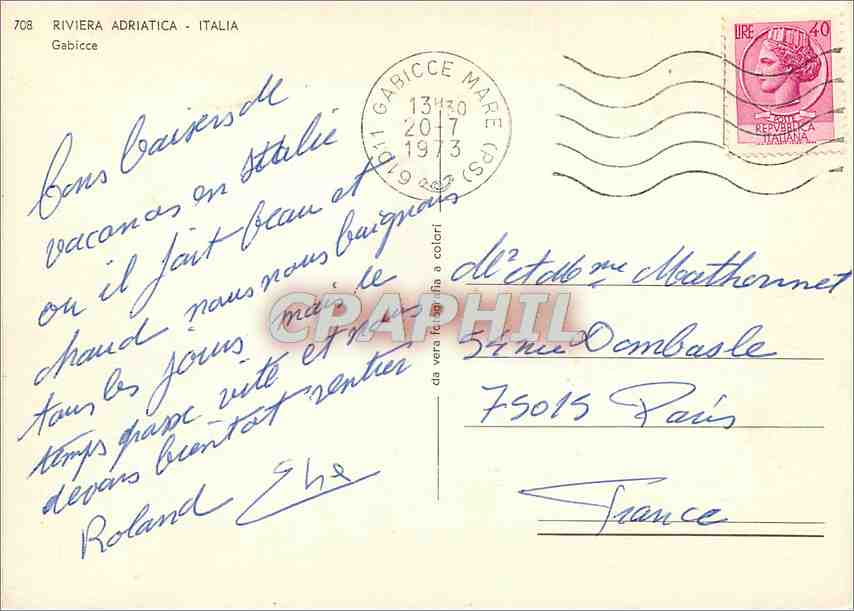 708 RIVIERA ADRIATICA - ITALIA
Gabicce
LIRE 40
POSTE
REPVBBLICA
ITALIANA
61011 GABICCE MARE (PS)
13H30
20-7
1973
bons baisers de
vacances en Italie
ou il fait beau et
chaud nous nous baignons
tous les jours mais le
temps passe vite et nous
devons bientot rentrer
Roland
da vera fotografia a colori
CPAPHIL
Mr et Mme Mathonnet
54 rue Dombasle
75015 Paris
France